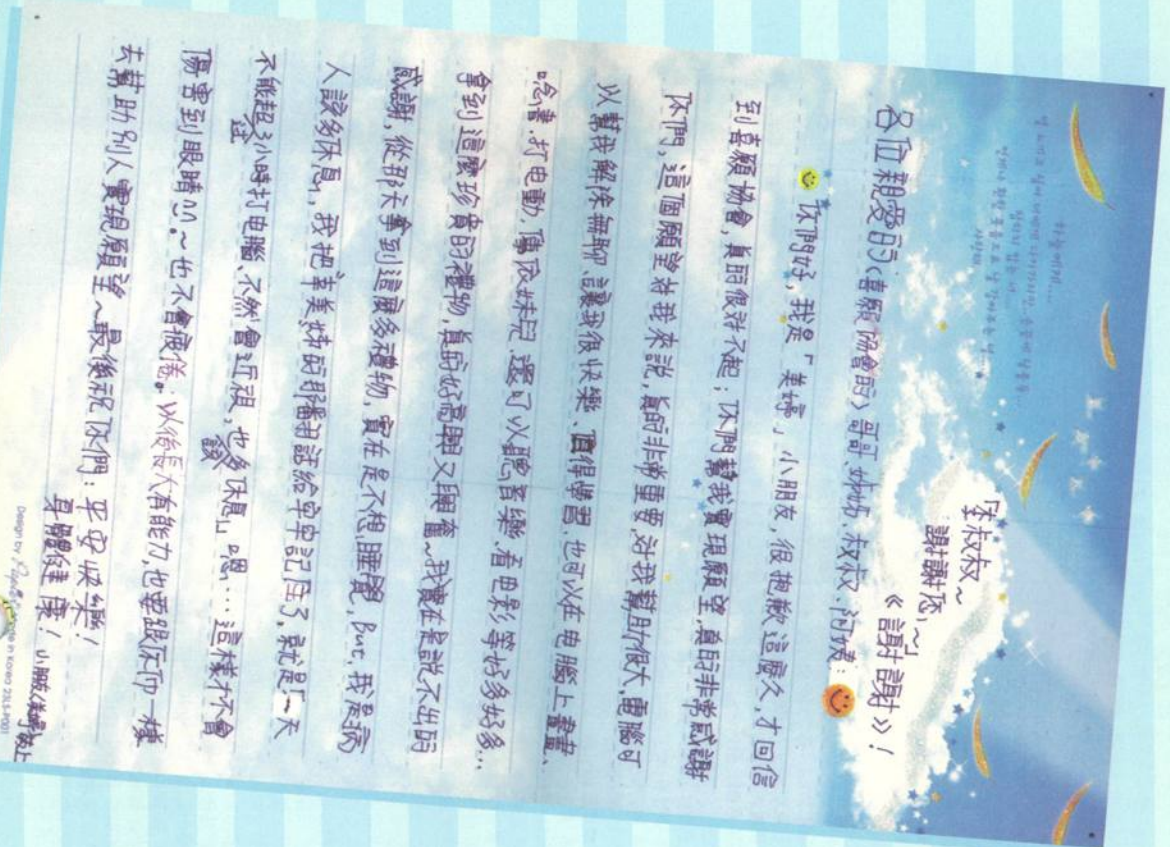 「李叔叔~
謝謝您~」
《謝謝》!
各位親愛的(喜願協會的)哥哥、姊姊、叔叔、阿姨:
你們好,我是「美婷」小朋友,很抱歉這麼久,才回信
到喜願協會,真的很對不起;你們幫我實現願望,真的非常感謝
你們,這個願望對我來說,真的非常重要,對我幫助很大,電腦可
以幫我解決無聊、讓我很快樂、值得學習.也可以在電腦上畫畫、
唸書.打电動.傳依妹兒.還可以聽音樂.看电影等好多好多...
拿到這麼珍貴的禮物,真的好高興又興奮~我實在是說不出的
感謝,從那天拿到這麼多禮物,實在是不想睡覺,But,我是病
人該多休息,我把辛美姊的那番話給牢牢記住了,就是「一天
不能超过3小時打电腦、不然會近視,也該多休息」嗯....這樣才不會
傷害到眼睛~也不會疲倦。以後長大有能力,也要跟你們一樣
去幫助別人實現願望~最後祝你們:平安快樂!
身體健康!
小朋友 敬上
Design by Made in Korea 23LS-P001